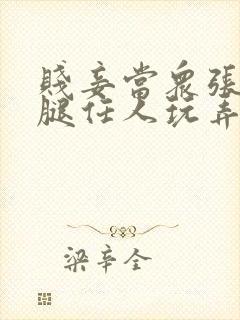 賤妾當眾張
腿任人玩弄
梁辛全